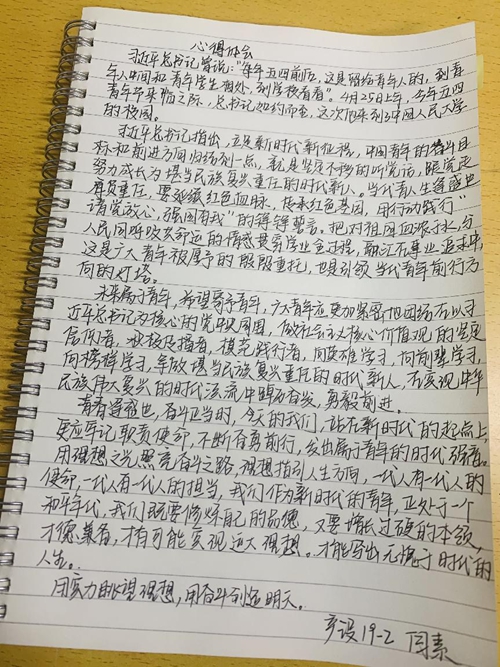 心得体会
习近平总书记曾说:“每年五四前后,这是留给青年人的,到青
年人中间和青年学生相处,到学校看看”。4月25日上午,今年五四
青年节来临之际,总书记如约而至,这次他来到了中国人民大学
的校园。
习近平总书记指出,立足新时代新征程,中国青年的奋斗目
标和前进方向归结到一点,就是坚定不移的听党话、跟党走
努力成长为堪当民族复兴重任的时代新人。当代青人生逢盛世
肩负重任,要延续红色血脉、传承红色基因,用行动践行“
请党放心,强国有我”的铮铮誓言。把对祖国血浓于水、与
人民同呼吸共命运的情感贯穿学业全过程,融汇在事业追求中,
这是广大青年被厚予的殷殷重托,也是引领当代青年前行方
向的灯塔。
未来属于青年,希望寄予青年,广大青年应更加紧密地团结在以习
近平总书记为核心的党中央周围,做社会主义核心价值观的坚定
信仰者,积极传播者,模范践行者,向英雄学习,向前辈学习,
向榜样学习,争做堪当民族复兴重任的时代新人,在实现中华
民族伟大复兴的时代洪流中踔厉奋发,勇毅前进。
青春逢盛世,奋斗正当时,今天的我们,站在新时代的起点上,
更应牢记职责使命,不断奋勇前行,发出属于青年的时代强音。
用理想之光照亮奋斗之路,理想指引人生方向,一代人有一代人的
使命,一代人有一代人的担当,我们作为新时代的青年,正处于一个
和平年代,我们既要修炼自己的品德,又要增长过硬的本领,
才德兼备,才有可能实现远大理想。才能写出无愧于时代的
人生。
用实力眺望理想,用奋斗创造明天。
产设19-2 闫素